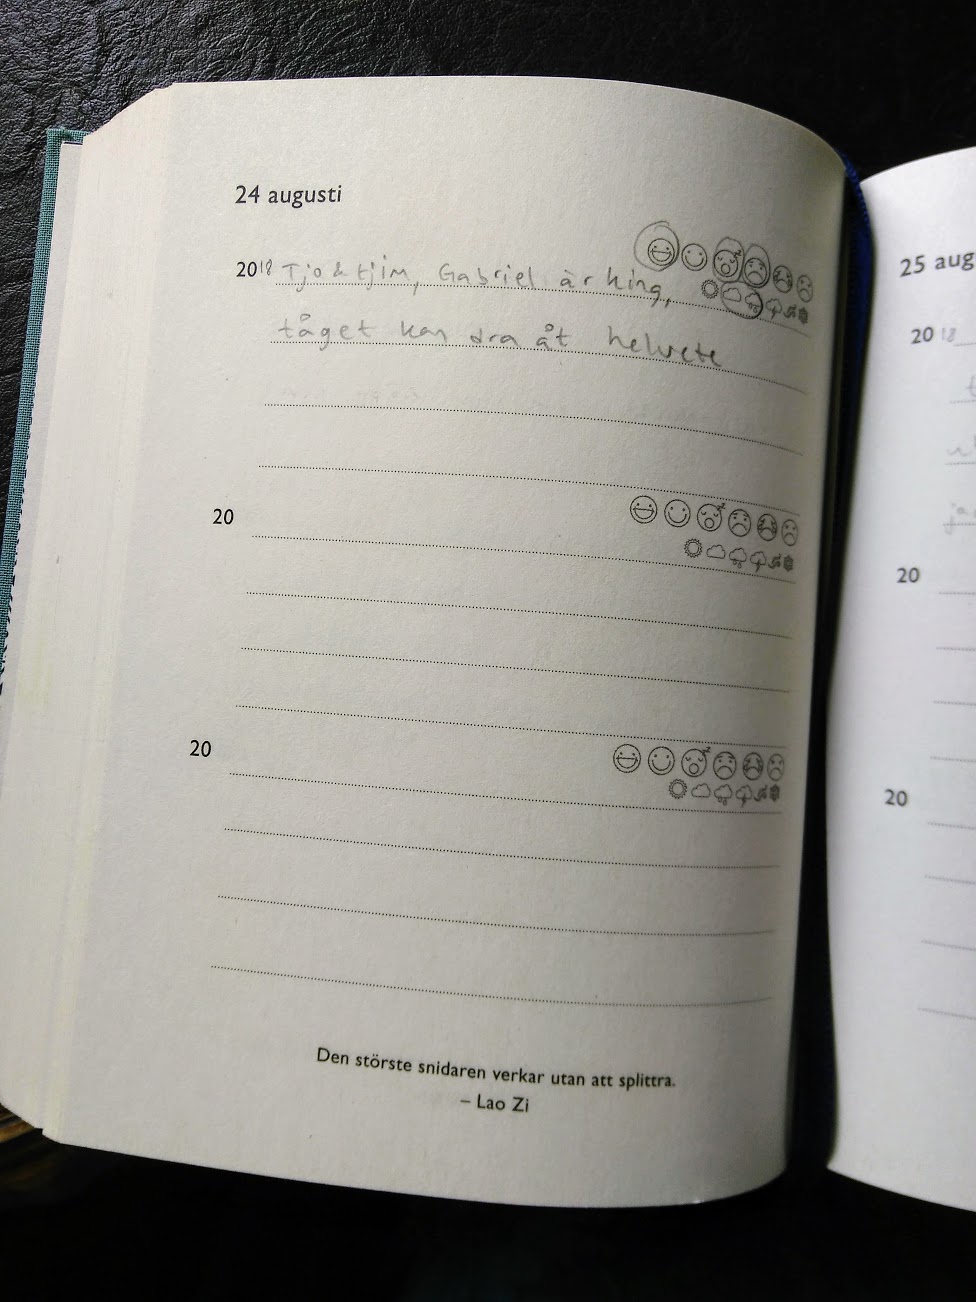 24 augusti
2018 Tjo & tjim, Gabriel är king,
tåget kan dra åt helvete
20
20
Den störste snidaren verkar utan att splittra.
– Lao Zi
25 aug
2018
20
20